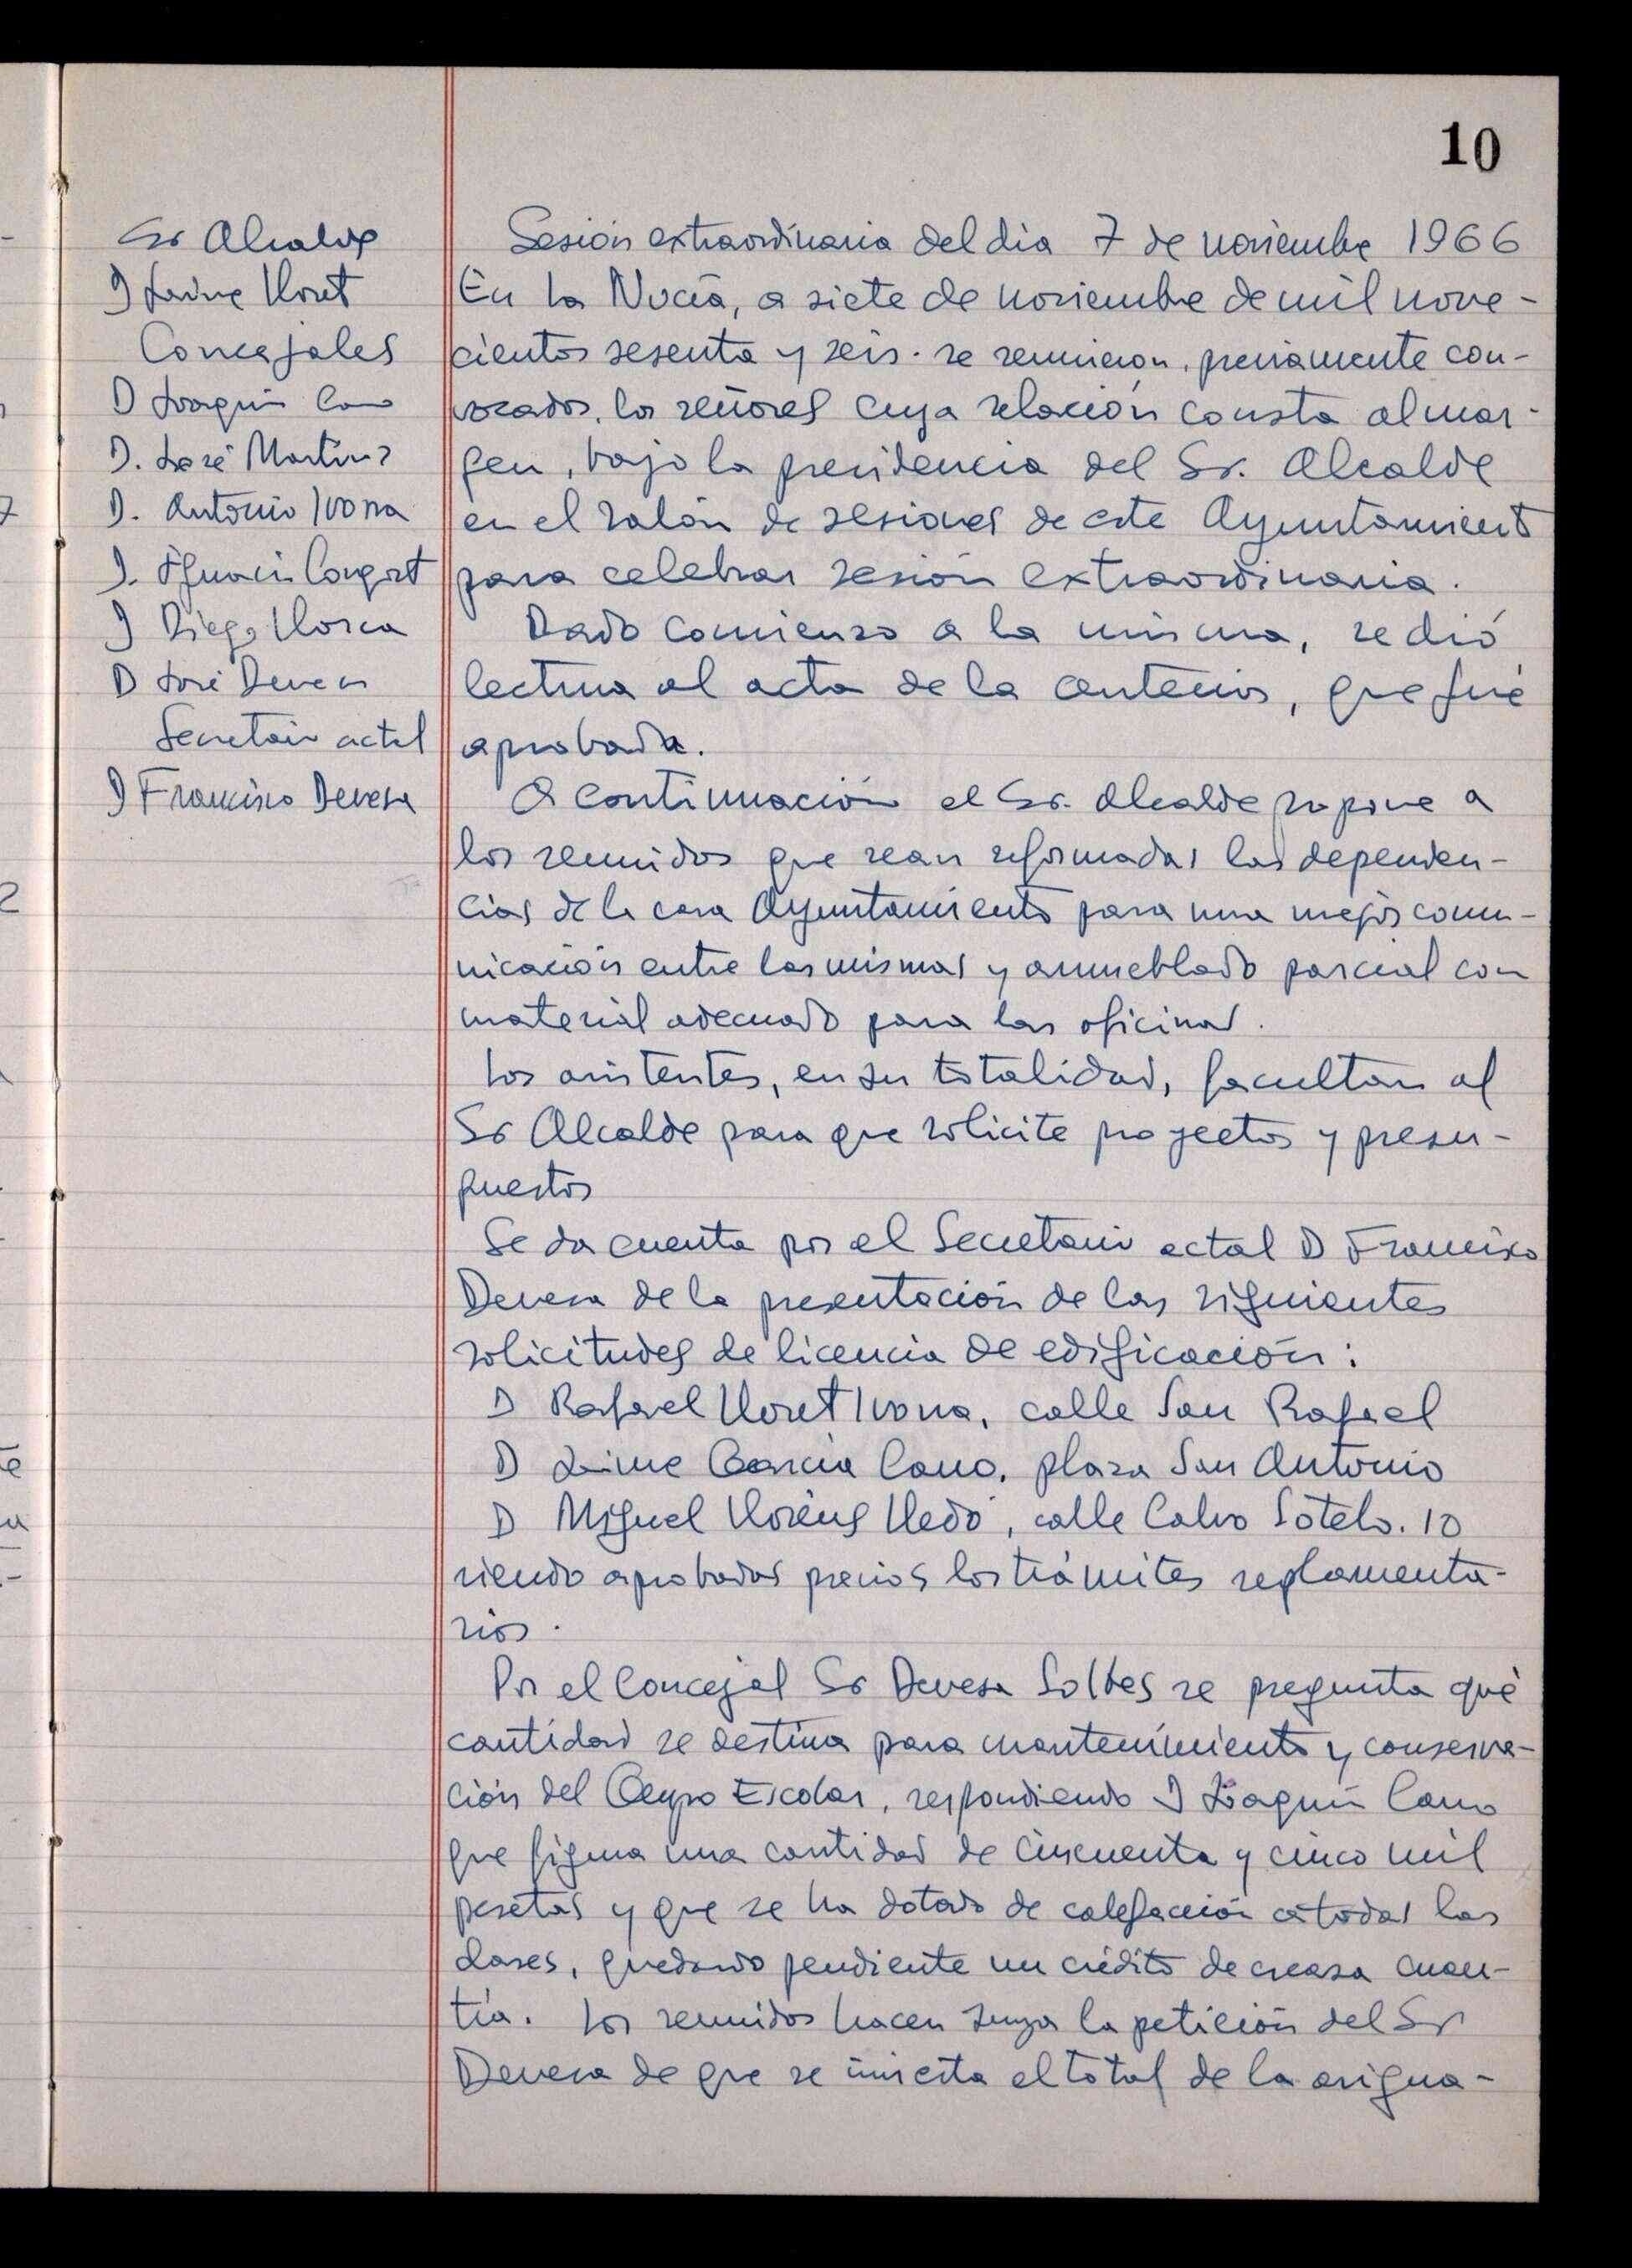 10
Sr Alcalde
D Jaime Lloret
Concejales
D Joaquin Cano
D. José Martinez
D. Antonio Ivorra
D. Ignacio Congost
D Diego Llorca
D José Devesa
Secretario actal
D Francisco Devesa
Sesión extraordinaria del dia 7 de noviembre 1966
En La Nucía, a siete de noviembre de mil nove-
cientos sesenta y seis. se reunieron, previamente con-
vocados, los señores cuya relación consta al mar-
gen, bajo la presidencia del Sr. Alcalde
en el salón de sesiones de este Ayuntamiento
para celebrar sesión extraordinaria.
Dado comienzo a la misma, se dió
lectura al acta de la anterior, que fué
aprobada.
A continuación el Sr. Alcalde propone a
los reunidos que sean reformadas las dependen-
cias de la casa Ayuntamiento para una mejor comu-
nicación entre las mismas y amueblado parcial con
material adecuado para las oficinas.
Los asistentes, en su totalidad, facultan al
Sr Alcalde para que solicite proyectos y presu-
puestos
Se da cuenta por el Secretario actal D Francisco
Devesa de la presentación de las siguientes
solicitudes de licencia de edificación:
D Rafael Lloret Ivorra, calle San Rafael
D Jaime García Cano, plaza San Antonio
D Miguel Lloréns Lledó, calle Calvo Sotelo. 10
siendo aprobadas previos los trámites reglamenta-
rios.
Por el Concejal Sr Devesa Soldes se pregunta qué
cantidad se destina para mantenimiento y conserva-
ción del Grupo Escolar, respondiendo D Joaquín Cano
que figura una cantidad de cincuenta y cinco mil
pesetas y que se ha dotado de calefacción a todas las
clases, quedando pendiente un crédito de creasa cuan-
tía. Los reunidos hacen suya la petición del Sr
Devesa de que se invierta el total de la asigna-